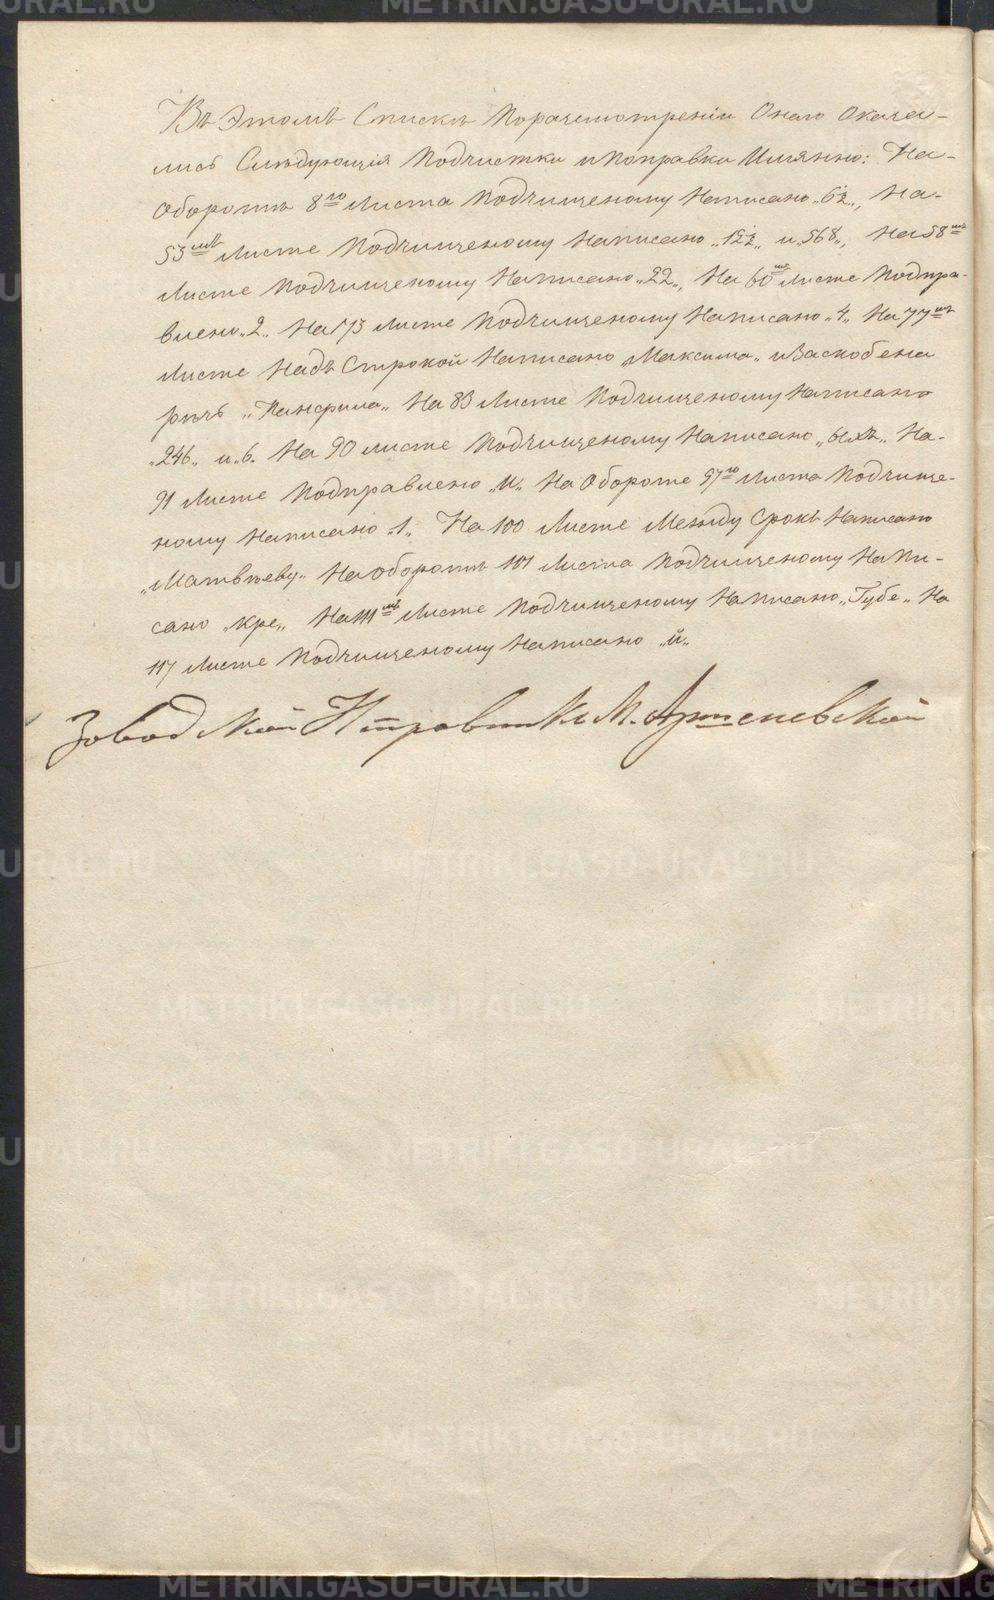 Въ Этомъ Спискѣ Поразсмотреніи Онаго Оказа-
лись Слѣдующія Подчистки и Поправки Имянно: На-
Оборотѣ 8го Листа Подчищеному Написано „6½„, На-
53мъ Листе Подчищеному Написано „12½„ и „568„, На 58мъ
Листе Подчищеному Написано „22„, На 60мъ Листе Подпра-
влено „2„ На 73 Листе Подчищеному Написано „4„ На 77мъ
Листе Надъ Строкой Написано „Максима„ и Заскобена
рѣчь „Панфила„ На 83 Листе Подчищеному Написано
„246„ и „6. На 90 листе Подчищеному Написано На-
91 Листе Подправлено „И„ На Обороте 97го Листа Подчище-
ному Написано „1„ На 100 Листе Между Срокъ Написано
„Матвѣеву„ На Оборотѣ 107 Листа Подчищеному Напи-
сано „кре„ На 111мъ Листе Подчищеному Написано „Губе„ На
117 Листе Подчищеному Написано „й„
Заводской Исправникъ М. Арсеневской
METRIKI.GASO-URAL.RU